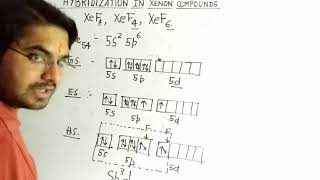 HYBRIDIZATION IN XENON COMPOUNDS
XeF₂, XeF₄, XeF₆
54 - 5s² 5p⁶
GS.
5s 5p 5d
ES.
5s 5p 5d
F F
HS.
5s 5p 5d
Sp³d